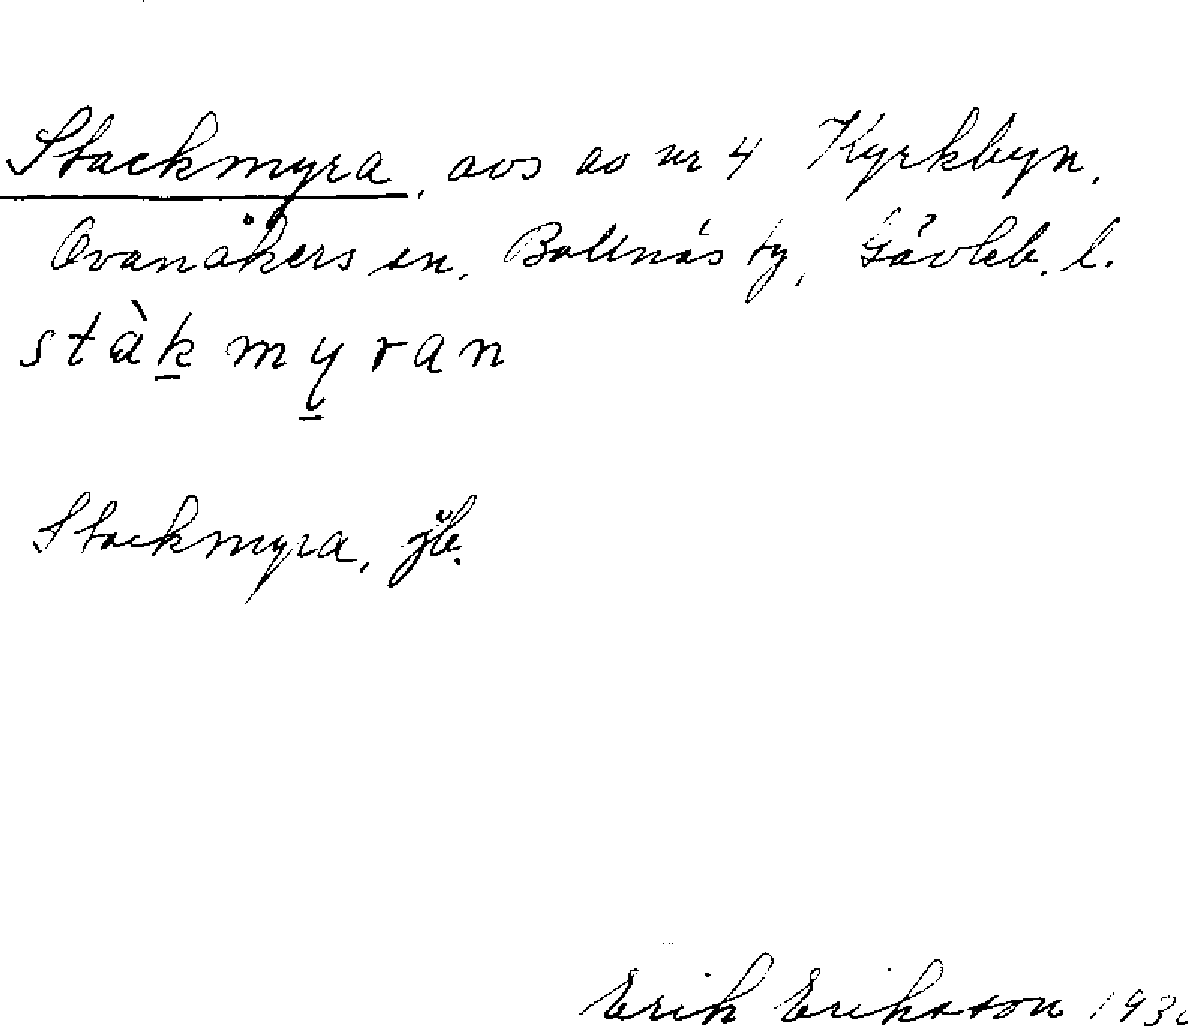 Stackmyra, avs av nr 4 Kyrkbyn,
Ovanåkers sn, Bollnäs tg, Gävleb. l.
stàk myran
Stackmyra, jb.
Erik Eriksson 193